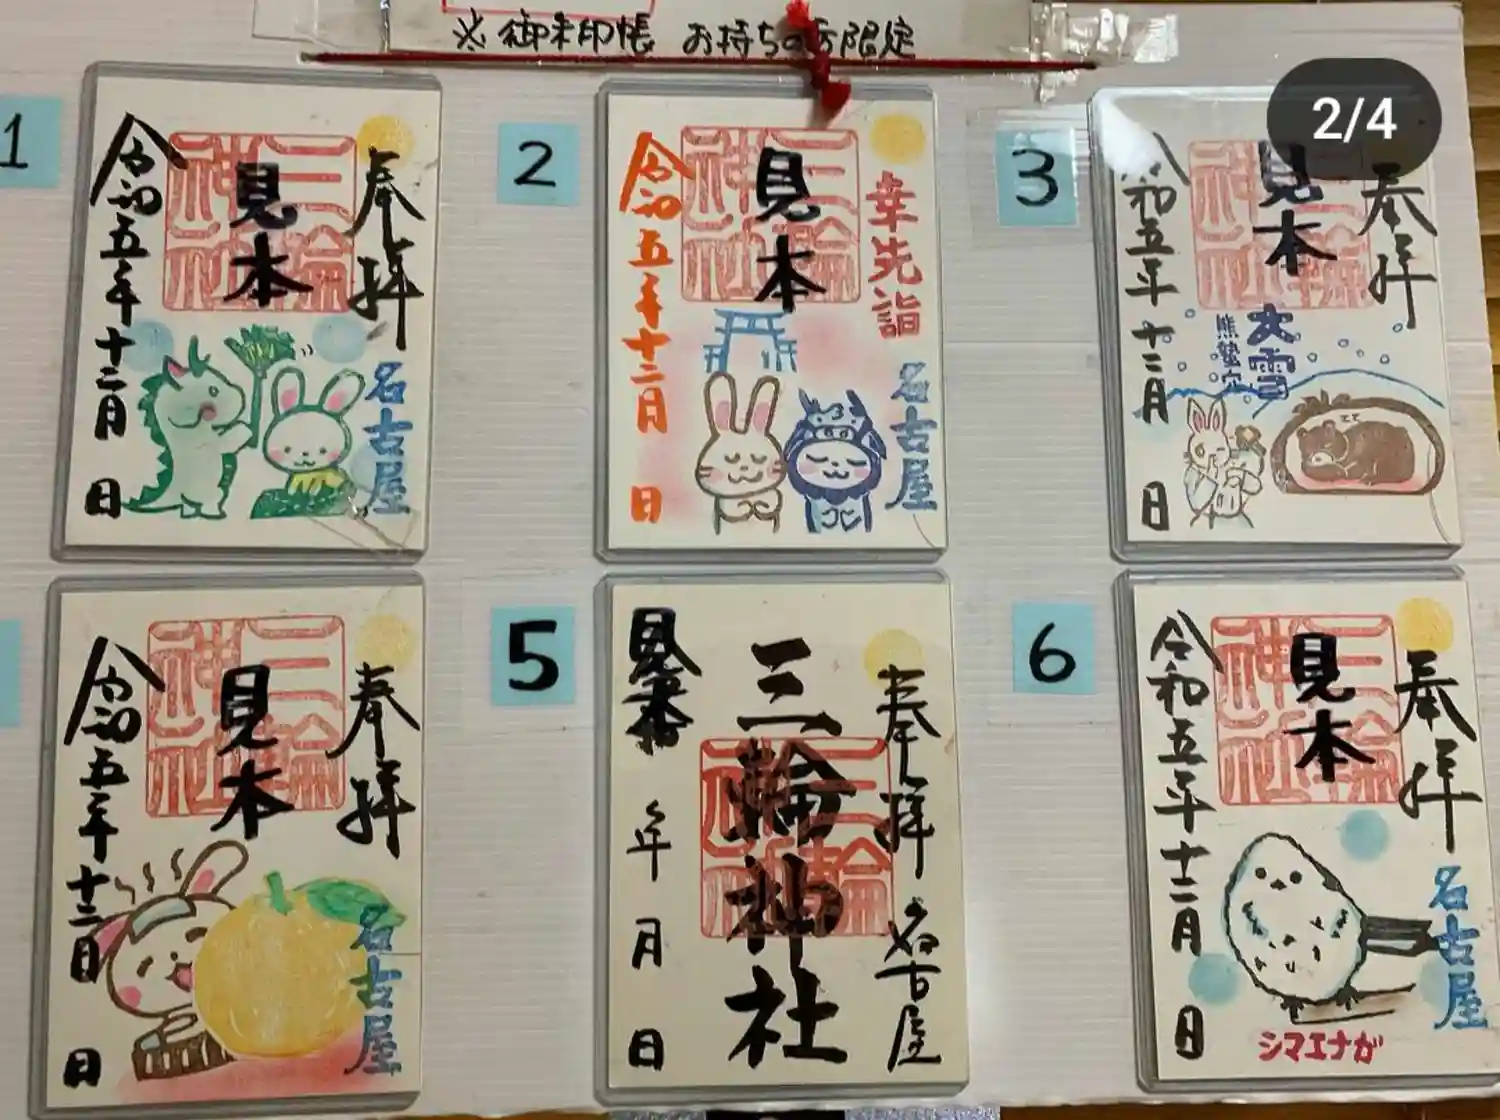 ※御朱印帳 お持ちの方限定
2/4
1
奉拝
三輪神社
見本
名古屋
令和五年十二月 日
2
幸先詣
三輪神社
見本
名古屋
令和五年十二月 日
3
奉拝
三輪神社
見本
大雪
熊蟄穴
令和五年十二月 日
奉拝
三輪神社
見本
名古屋
令和五年十二月 日
5
奉拝 名古屋
三輪神社
三輪神社
年 月 日
6
奉拝
三輪神社
見本
名古屋
令和五年十二月 日
シマエナガ